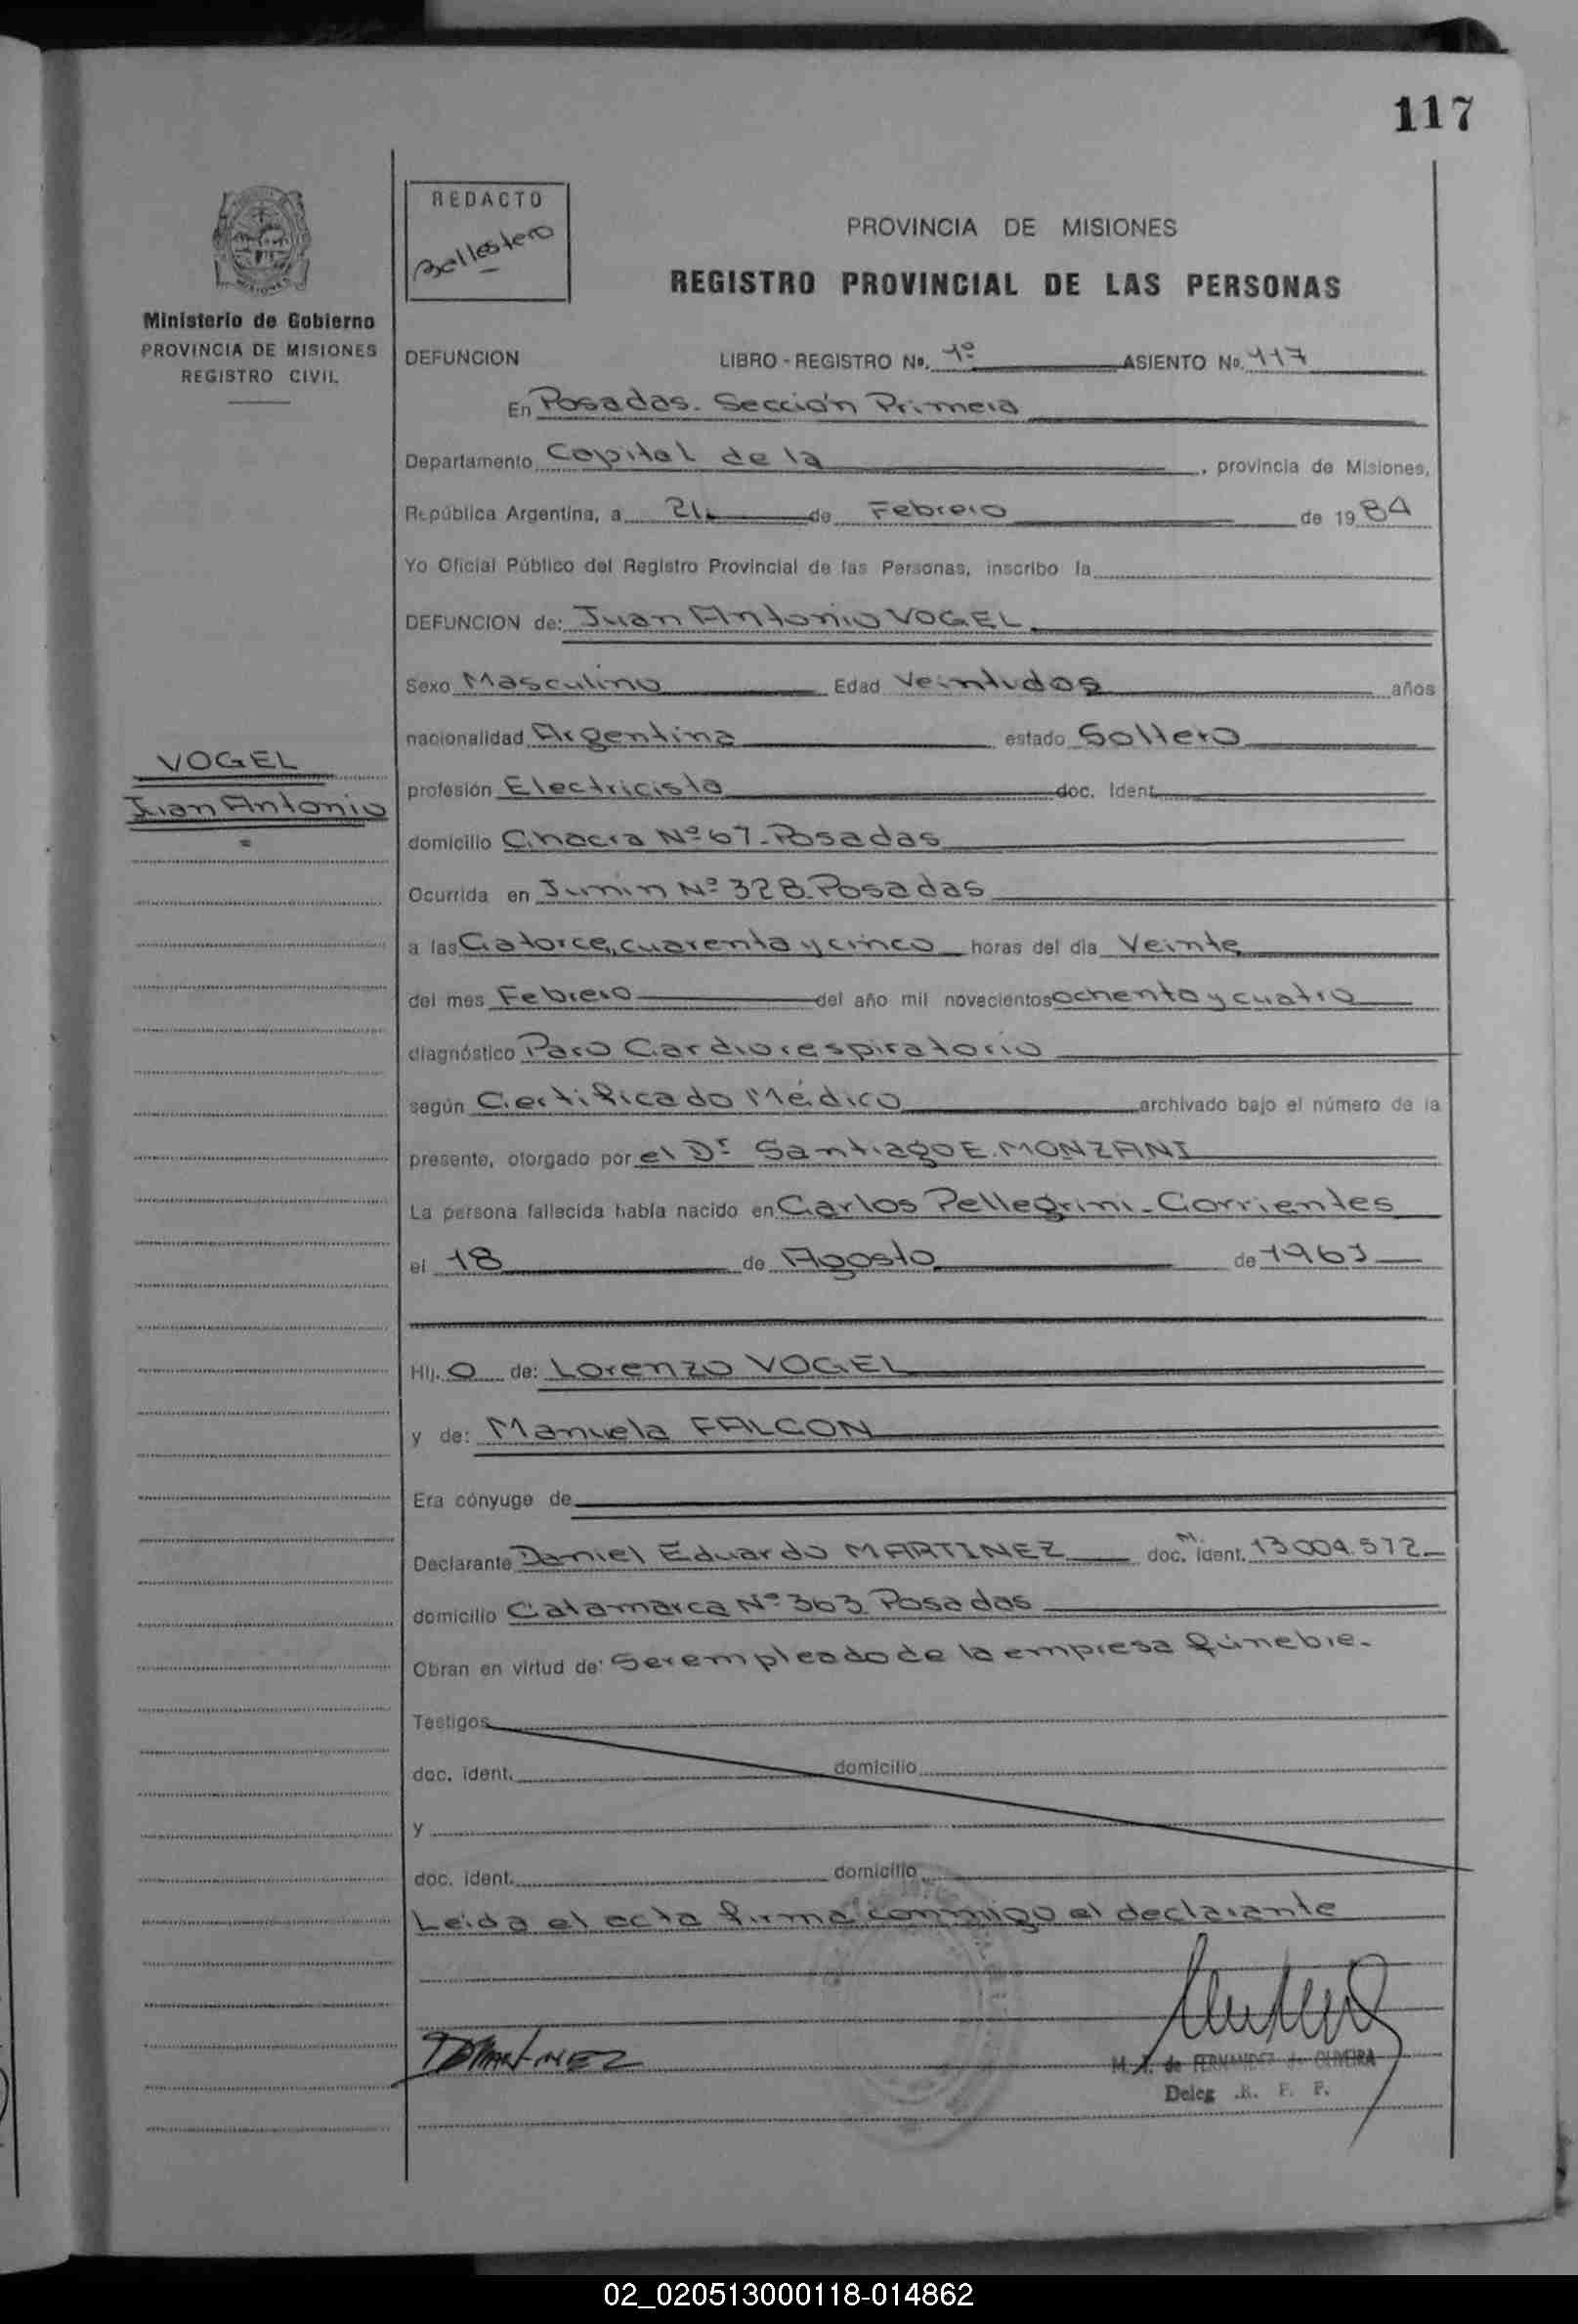 117
REDACTO
Ballestero
PROVINCIA DE MISIONES
REGISTRO PROVINCIAL DE LAS PERSONAS
Ministerio de Gobierno
PROVINCIA DE MISIONES
REGISTRO CIVIL
DEFUNCION LIBRO - REGISTRO No. 1º ASIENTO No. 117
En Posadas. Sección Primera
Departamento Capital de la , provincia de Misiones,
República Argentina, a 21 de Febrero de 1984
Yo Oficial Público del Registro Provincial de las Personas, inscribo la
DEFUNCION de: Juan Antonio VOGEL
Sexo Masculino Edad Veintidos años
nacionalidad Argentina estado Soltero
VOGEL
Juan Antonio
profesión Electricista doc. Ident.
domicilio Chacra Nº 67-Posadas
Ocurrida en Junin Nº 328-Posadas
a las Catorce, cuarenta y cinco horas del día Veinte
del mes Febrero del año mil novecientos ochenta y cuatro
diagnóstico Paro Cardiorespiratorio
según Certificado Médico archivado bajo el número de la
presente, otorgado por el Dr Santiago E. MONZANI
La persona fallecida había nacido en Carlos Pellegrini-Corrientes
el 18 de Agosto de 1961
Hij. o de: Lorenzo VOGEL
y de: Manuela FALCON
Era cónyuge de
Declarante Daniel Eduardo MARTINEZ doc. M. ident. 13004.572
domicilio Catamarca Nº 363 Posadas
Obran en virtud de: Ser empleado de la empresa fúnebre.
Testigos
doc. ident. domicilio
y
doc. ident. domicilio
Leida el acta firma conmigo el declarante
DMARTINEZ
M. A. de FERNANDEZ de OLIVEIRA
Deleg .R. P. P.
02_020513000118-014862